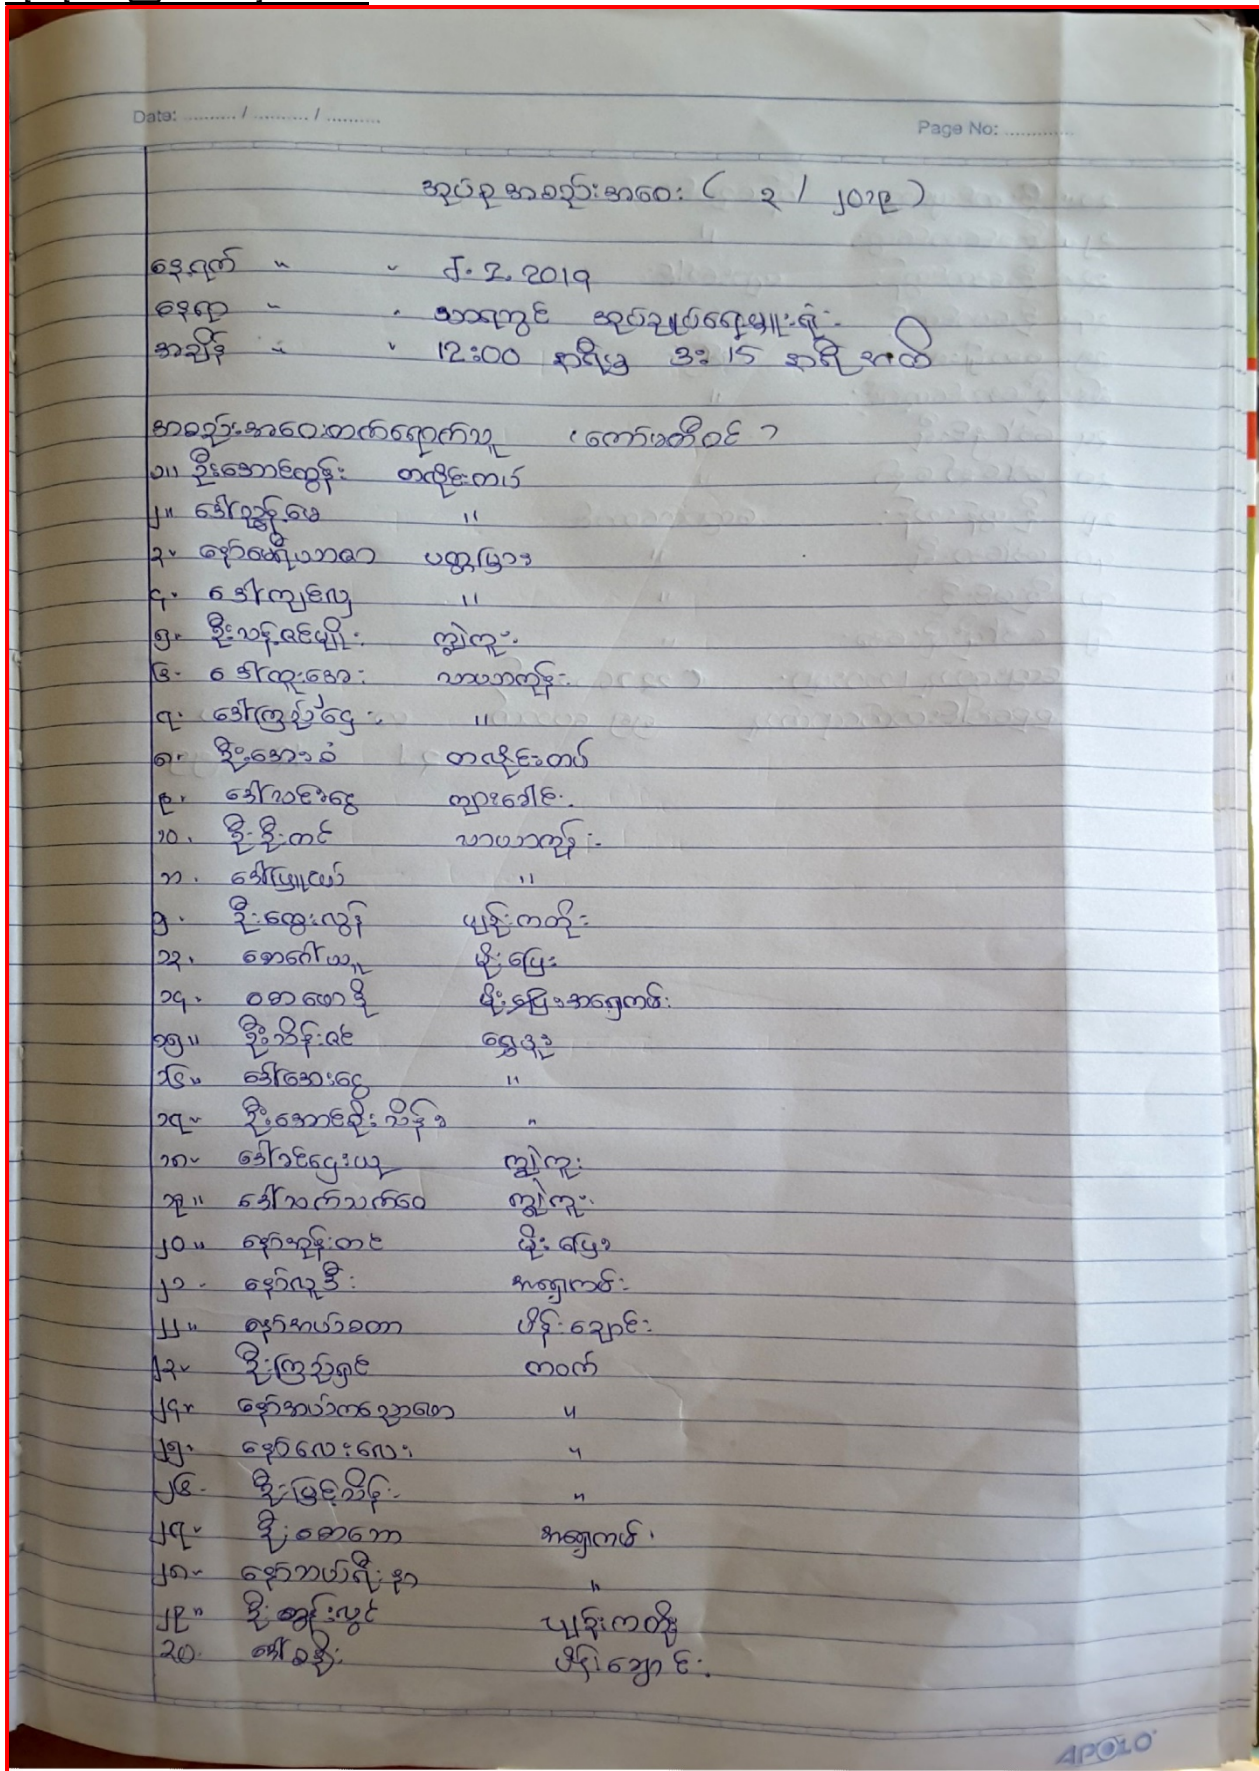 Date: ......... / .......... / ..........
Page No: .............
အုပ်စုအစည်းအဝေး ( ၃ / ၂၀၁၉ )
နေ့ရက် " " 5. 2. 2019
နေရာ " " အုပ်ချုပ်ရေးမှူးရုံး
အချိန် " " 12:00 နာရီမှ 3:15 နာရီ အထိ
အစည်းအဝေးတက်ရောက်သူ (ကော်မတီဝင်)
၁။ ဦးအောင်ထွန်း တလိုင်းတပ်
၂။ ဒေါ်ညွန့်မေ "
၃။ ပတ္တမြား
၄။ ဒေါ်ကျင်လှ "
၅။ ဦးသန့်ဇင်မျိုး ကျွဲကူး
၆။ ဒေါ်ထူးအေး သာယာကုန်း
၇။ ဒေါ်ကြည်ဌေး "
၈။ ဦးအေးခံ တလိုင်းတပ်
၉။ ဒေါ်သန်းငွေ ကျားခေါင်း
၁၀။ ဦးဦးတင် သာယာကုန်း
၁၁။ ဒေါ်ဖြူယော် "
ဦးထွေးလွန် ပျဉ်းကတိုး
၁၃။ မိုးပြေး
၁၄။ စောဖောဒို မိုးပြေးအရှေ့ကမ်း
၁၅။ ဦးသိန်းဇင် ရွှေဒူး
၁၆။ ဒေါ်အေးငွေ "
၁၇။ ဦးအောင်စိုးသိန်း "
၁၈။ ဒေါ်ခင်ဌေးယု ကျွဲကူး
၁၉။ ဒေါ်သက်သက်ဝေ ကျွဲကူး
၂၀။ နော်အုန်းတင် မိုးပြေး
၂၁။ နော်လူဒီး အရှေ့ကမ်း
၂၂။ နော်အယ်ခတာ ပိန်းချောင်း
၂၃။ ဦးကြည်ရှင် ကဝက်
၂၄။ "
၂၅။ နော်လေးလေး "
၂၆။ ဦးမြင့်သိန်း "
၂၇။ ဦးစောဘော အရှေ့ကမ်း
၂၈။ နော်ဘယ်ရီးနာ "
၂၉။ ဦးထွန်းလွင် ပျဉ်းကတိုး
၃၀။ ပိန်းချောင်း
APOLO